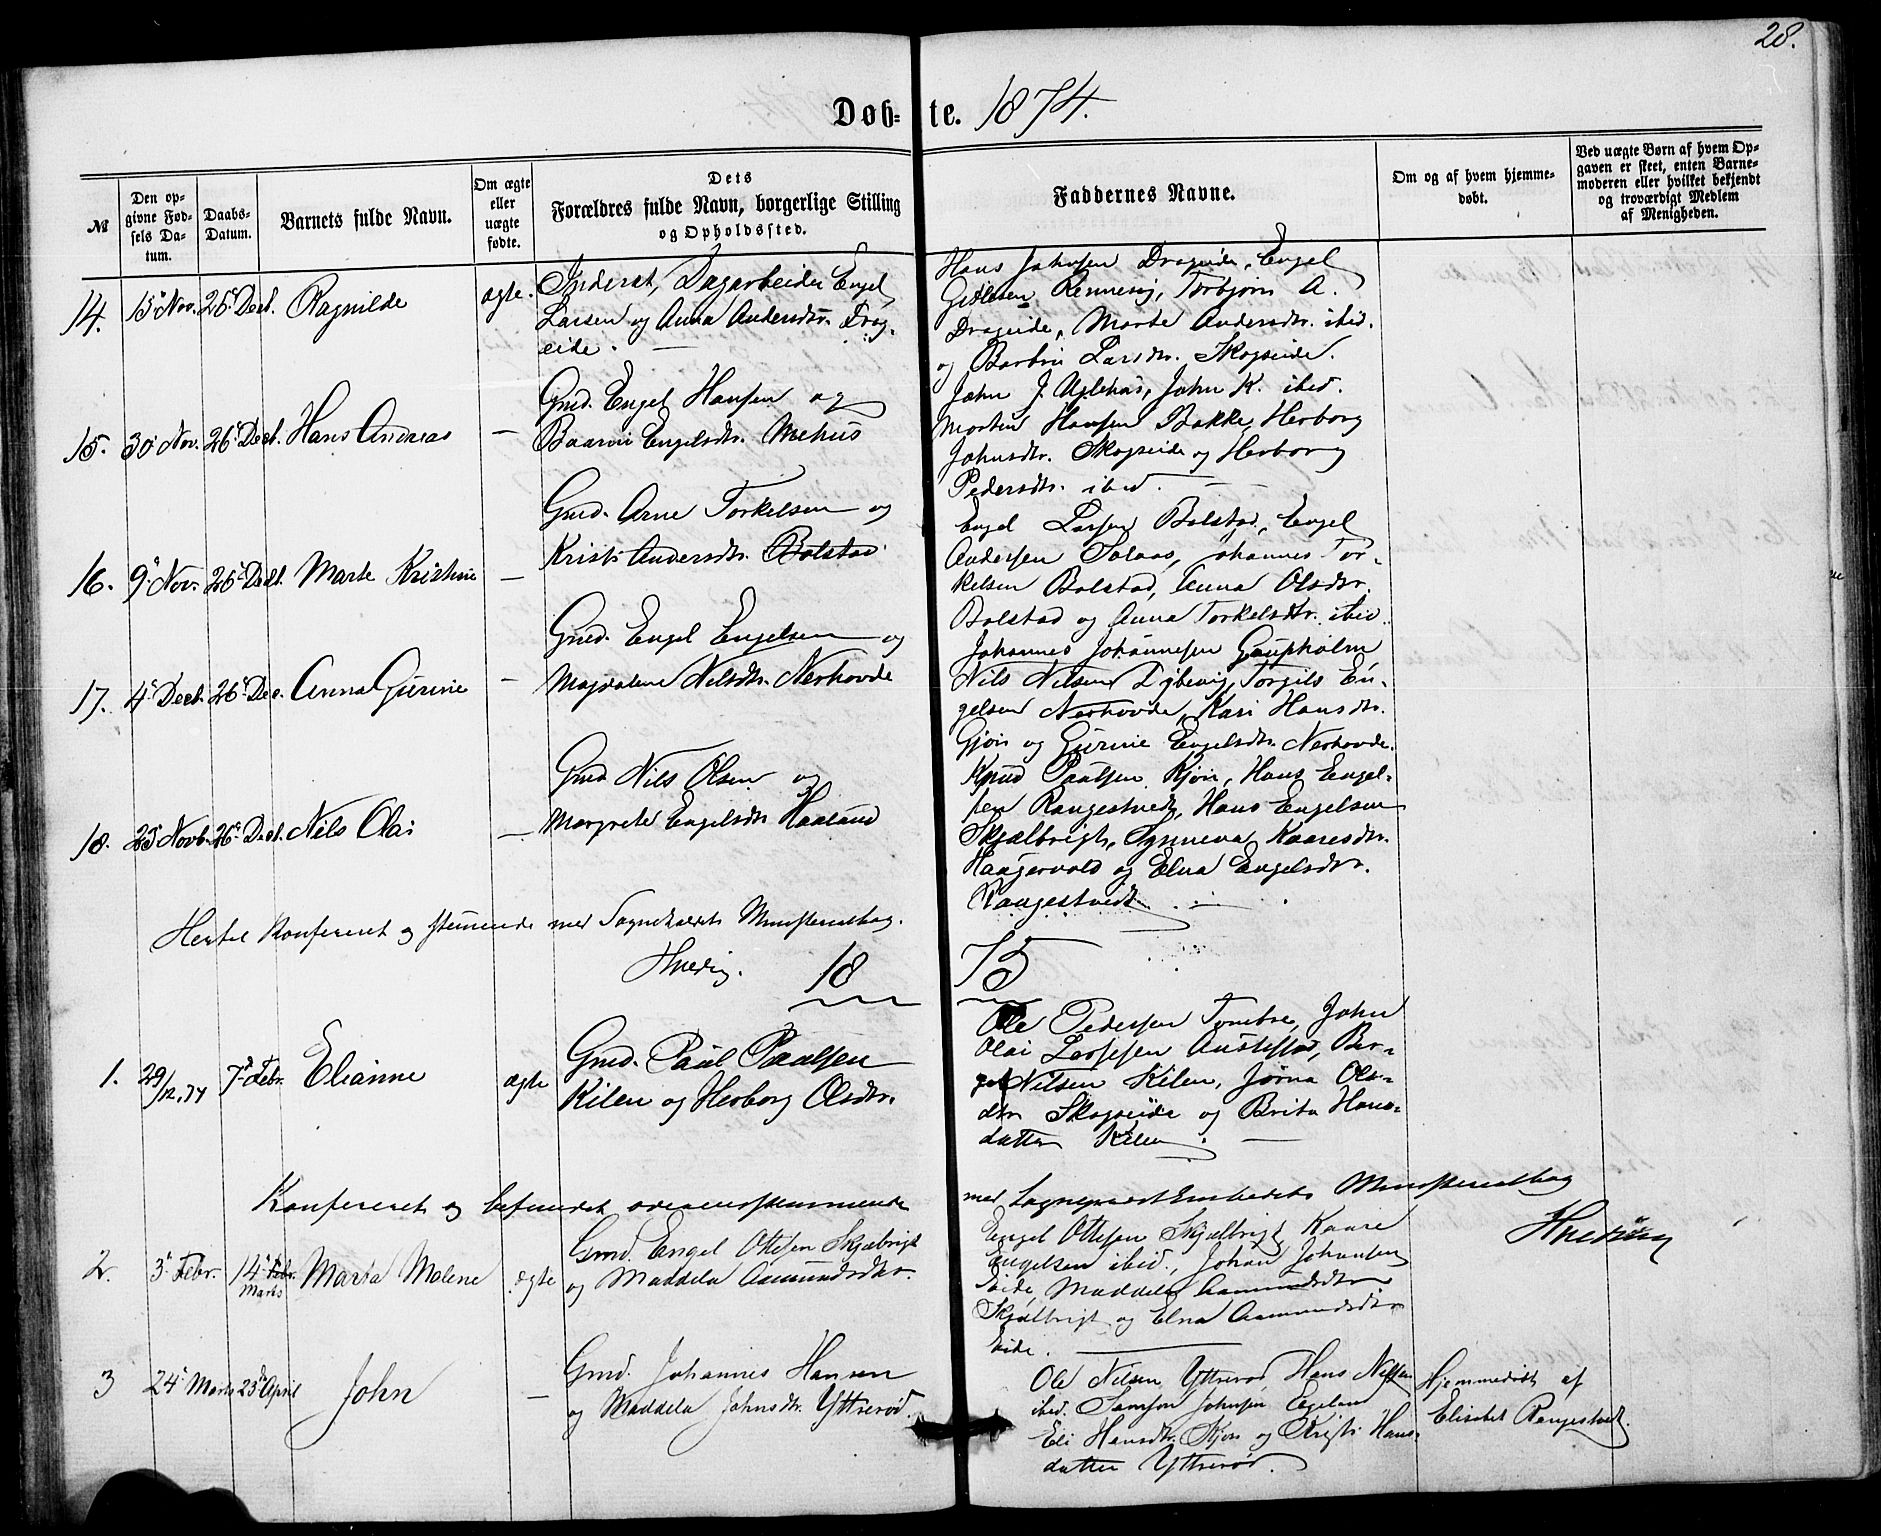 28.
Døb= te. 1874.
№
Den op-
givne Fød-
sels Da-
tum.
Daabs-
Datum.
Barnets fulde Navn.
Om ægte
eller
uægte
fødte.
Dets
Forældres fulde Navn, borgerlige Stilling
og Opholdssted.
Faddernes Navne.
Om og af hvem hjemme-
døbt.
Ved uægte Børn af hvem Op-
gaven er skeet, enten Barne-
moderen eller hvilket bekjendt
og troværdigt Medlem
af Menigheden.
14. 15 Nov. 26 Decb. Ragnilde ægte. Inderst, Dagarbeider Engel
Larsen og Anna Andersdtr. Drag-
eide.
Hans Johnsen Drageide, Engel
Gitlesen Rennesvig, Torbjørn A.
Drageide, Marte Andersdtr. ibid.
og Barbro Larsdtr. Skogseide.
15. 30 Nov. 26 Decb. Hans Andreas — Gmd. Engel Hansen og
Baaroe Engelsdtr. Mehus
John J. Uglehus, John K. ibid.
Morten Hansen Bakke, Herborg
Johnsdtr. Skogseide og Herborg
Pedersdtr. ibid.
16. 9 Nov. 26 Decb. Marte Kristine — Gmd. Arne Torkelsen og
Kristi Andersdtr. Bolstad
Engel Larsen Bolstad, Engel
Andersen Solaas, Johannes Tor-
kelsen Bolstad, Anna Olsdtr.
Bolstad og Anna Torkelsdtr. ibid.
17. 4 Decb. 26 Dec. Anna Gurine — Gmd. Engel Engelsen og
Magdalene Nilsdtr. Nerhovde
Johannes Johannesen Gaupholm
Nils Nilsen Dybevig, Torgils En-
gelsen Nerhovde, Kari Hansdtr.
Gjøn og Gurine Engelsdtr. Nerhovde.
18. 23 Novb. 26 Decb. Nils Olai — Gmd Nils Olsen og
Margrete Engelsdtr Haaland
Knud Paulsen Kjøn, Hans Engel-
sen Rangestvedt, Hans Engelsen
Skjælbrigt, Synneva Kaaresdtr.
Haugervold og Elna Engelsdtr.
Rangestvedt
Hertil Konfereret og stemmende med Sognekaldets Ministerialbog.
18 75
1. 29/12.74 7 Febr. Elianne ægte Gmd. Paul Paulsen
Kilen og Herborg Olsdtr.
Ole Pedersen Tombre, John
Olai Larsen Austestad, Ber-
get Nilsen Kilen, Jørna Ols-
dtr Skogseide og Brita Hans-
datter Kilen.
Konfereret og befundet overensstemmende med Sognepræst Embedets Ministerialbog
2. 3 Febr. 14 Febr. Marts Marta Malene ægte Gmd. Engel Ottesen Skjælbrigt
og Maddela Aamundsdtr.
Engel Ottesen Skjælbrigt Kaare
Engelsen ibid., Johan Johansen
Eide, Maddela Aamundsdtr
Skjælbrigt og Elna Aamundsdtr
Eide.
3 24 Marts 23 April John — Gmd. Johannes Hansen
og Maddela Johnsdtr. Yttrerød.
Ole Nilsen Yttrerød, Hans Nilsen
ibid. Samson Johnsen Egeland
Eli Hansdtr. Kjøn og Kristi Hans-
datter Yttrerød.
Hjemmedøbt af
Elisabet Rangestvedt.